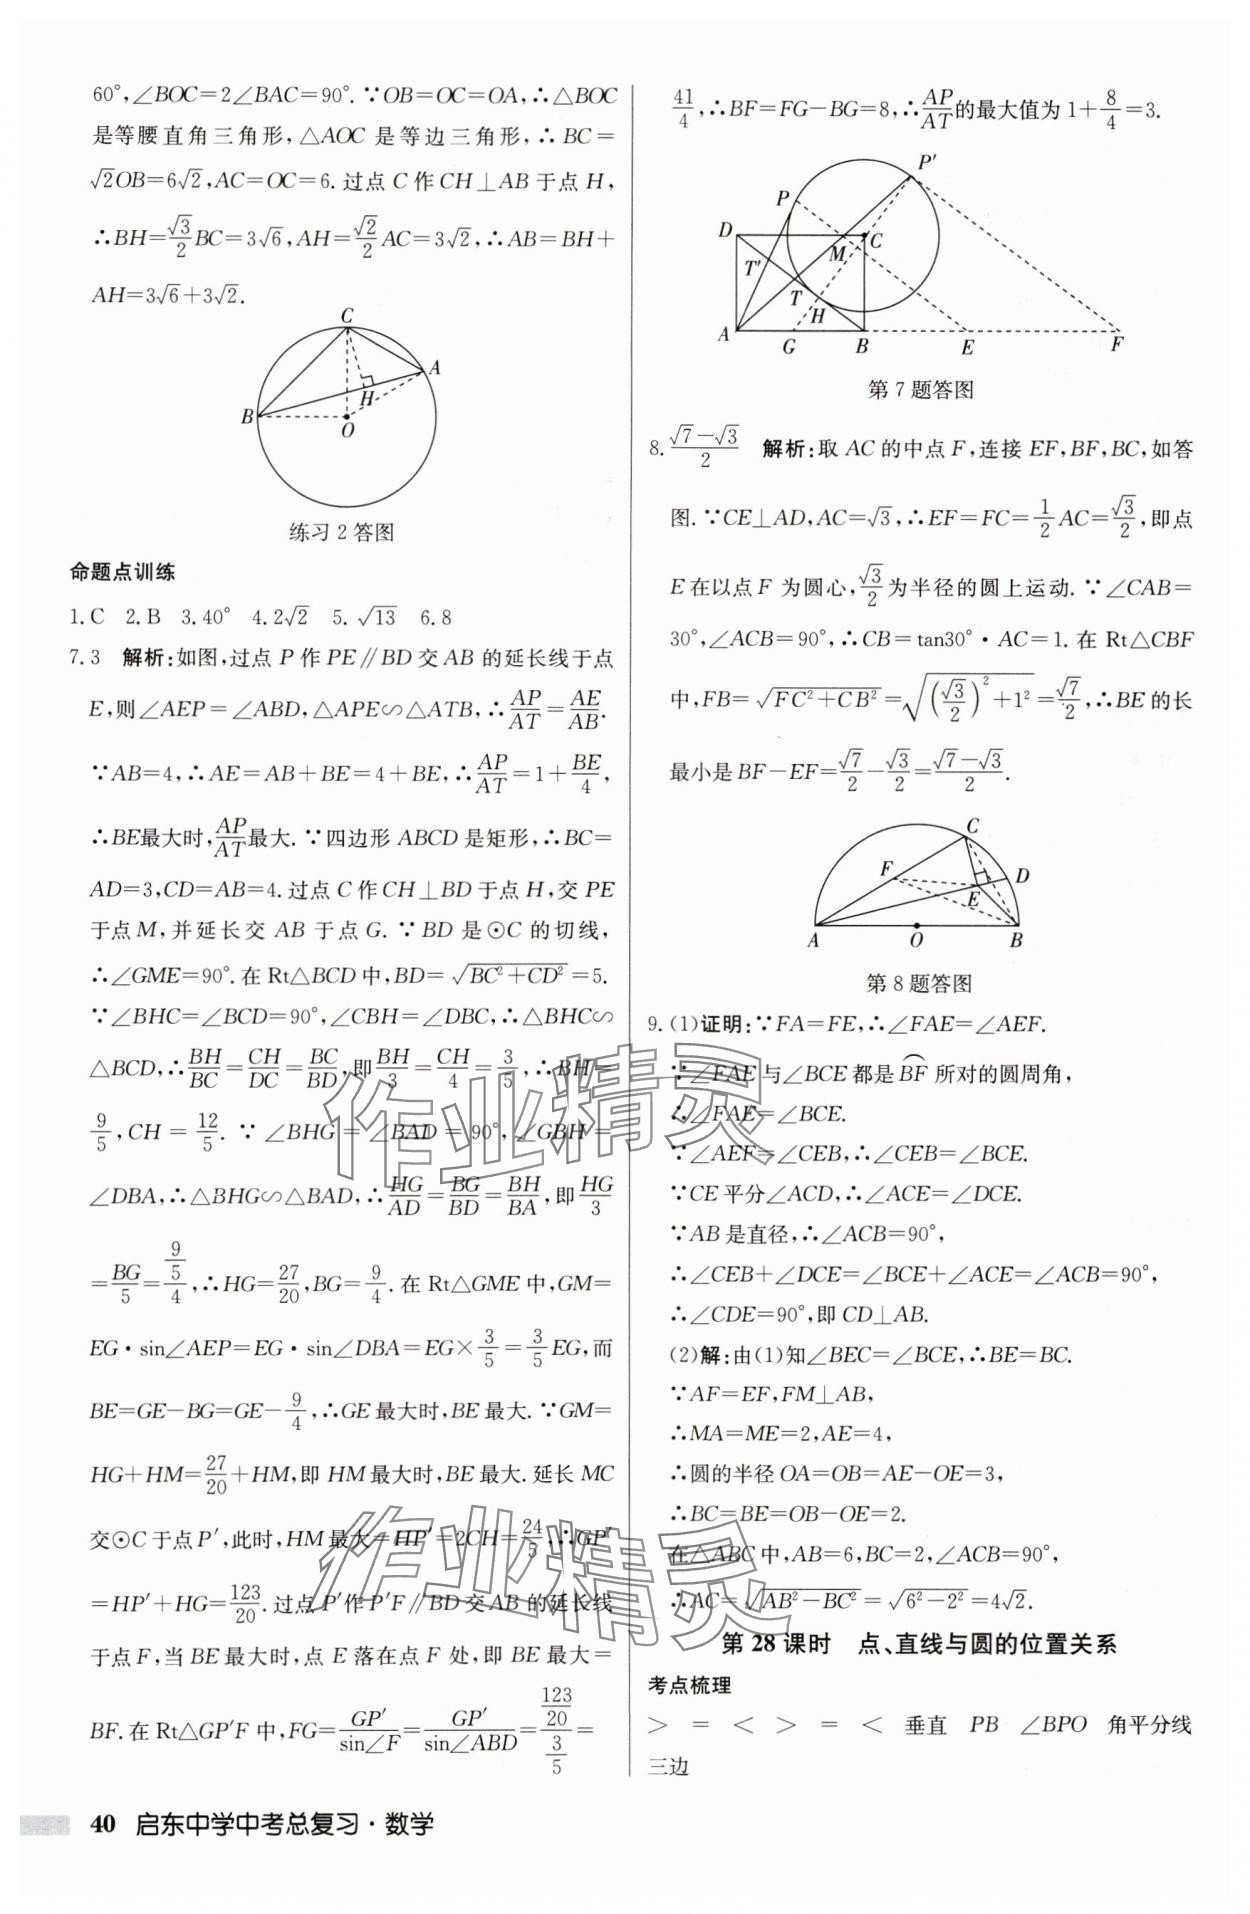 60°,∠BOC=2∠BAC=90°.∵OB=OC=OA,∴△BOC
是等腰直角三角形,△AOC是等边三角形,∴BC=
√2OB=6√2,AC=OC=6.过点C作CH⊥AB于点H,
∴BH=√3/2BC=3√6,AH=√2/2AC=3√2,∴AB=BH+
AH=3√6+3√2.
C
A
H
B
O
练习2答图
命题点训练
1.C 2.B 3.40° 4.2√2 5.√13 6.8
7.3 解析:如图,过点P作PE∥BD交AB的延长线于点
E,则∠AEP=∠ABD,△APE∽△ATB,∴AP/AT=AE/AB.
∵AB=4,∴AE=AB+BE=4+BE,∴AP/AT=1+BE/4,
∴BE最大时,AP/AT最大.∵四边形ABCD是矩形,∴BC=
AD=3,CD=AB=4.过点C作CH⊥BD于点H,交PE
于点M,并延长交AB于点G.∵BD是⊙C的切线,
∴∠GME=90°.在Rt△BCD中,BD=√(BC²+CD²)=5.
∵∠BHC=∠BCD=90°,∠CBH=∠DBC,∴△BHC∽
△BCD,∴BH/BC=CH/DC=BC/BD,即BH/3=CH/4=3/5,∴BH=
9/5,CH=12/5.∵∠BHG=∠BAD=90°,∠GBH=
∠DBA,∴△BHG∽△BAD,∴HG/AD=BG/BD=BH/BA,即HG/3
=BG/5=(9/5)/4,∴HG=27/20,BG=9/4.在Rt△GME中,GM=
EG·sin∠AEP=EG·sin∠DBA=EG×3/5=3/5EG,而
BE=GE-BG=GE-9/4,∴GE最大时,BE最大.∵GM=
HG+HM=27/20+HM,即HM最大时,BE最大.延长MC
交⊙C于点P′,此时,HM最大=HP′=2CH=24/5,∴GP′
=HP′+HG=123/20.过点P′作P′F∥BD交AB的延长线
于点F,当BE最大时,点E落在点F处,即BE最大=
BF.在Rt△GP′F中,FG=GP′/sin∠F=GP′/sin∠ABD=(123/20)/(3/5)=
41/4,∴BF=FG-BG=8,∴AP/AT的最大值为1+8/4=3.
P′
P
D
C
M
T′
T
H
A
G
B
E
F
第7题答图
8.(√7-√3)/2 解析:取AC的中点F,连接EF,BF,BC,如答
图.∵CE⊥AD,AC=√3,∴EF=FC=1/2AC=√3/2,即点
E在以点F为圆心,√3/2为半径的圆上运动.∵∠CAB=
30°,∠ACB=90°,∴CB=tan30°·AC=1.在Rt△CBF
中,FB=√(FC²+CB²)=√((√3/2)²+1²)=√7/2,∴BE的长
最小是BF-EF=√7/2-√3/2=(√7-√3)/2.
C
F
D
E
A
O
B
第8题答图
9.(1)证明:∵FA=FE,∴∠FAE=∠AEF.
∵∠FAE与∠BCE都是BF⌒所对的圆周角,
∴∠FAE=∠BCE.
∵∠AEF=∠CEB,∴∠CEB=∠BCE.
∵CE平分∠ACD,∴∠ACE=∠DCE.
∵AB是直径,∴∠ACB=90°,
∴∠CEB+∠DCE=∠BCE+∠ACE=∠ACB=90°,
∴∠CDE=90°,即CD⊥AB.
(2)解:由(1)知∠BEC=∠BCE,∴BE=BC.
∵AF=EF,FM⊥AB,
∴MA=ME=2,AE=4,
∴圆的半径OA=OB=AE-OE=3,
∴BC=BE=OB-OE=2.
在△ABC中,AB=6,BC=2,∠ACB=90°,
∴AC=√(AB²-BC²)=√(6²-2²)=4√2.
第28课时 点、直线与圆的位置关系
考点梳理
> = < > = < 垂直 PB ∠BPO 角平分线
三边
作业精灵
作业精灵
40 启东中学中考总复习·数学